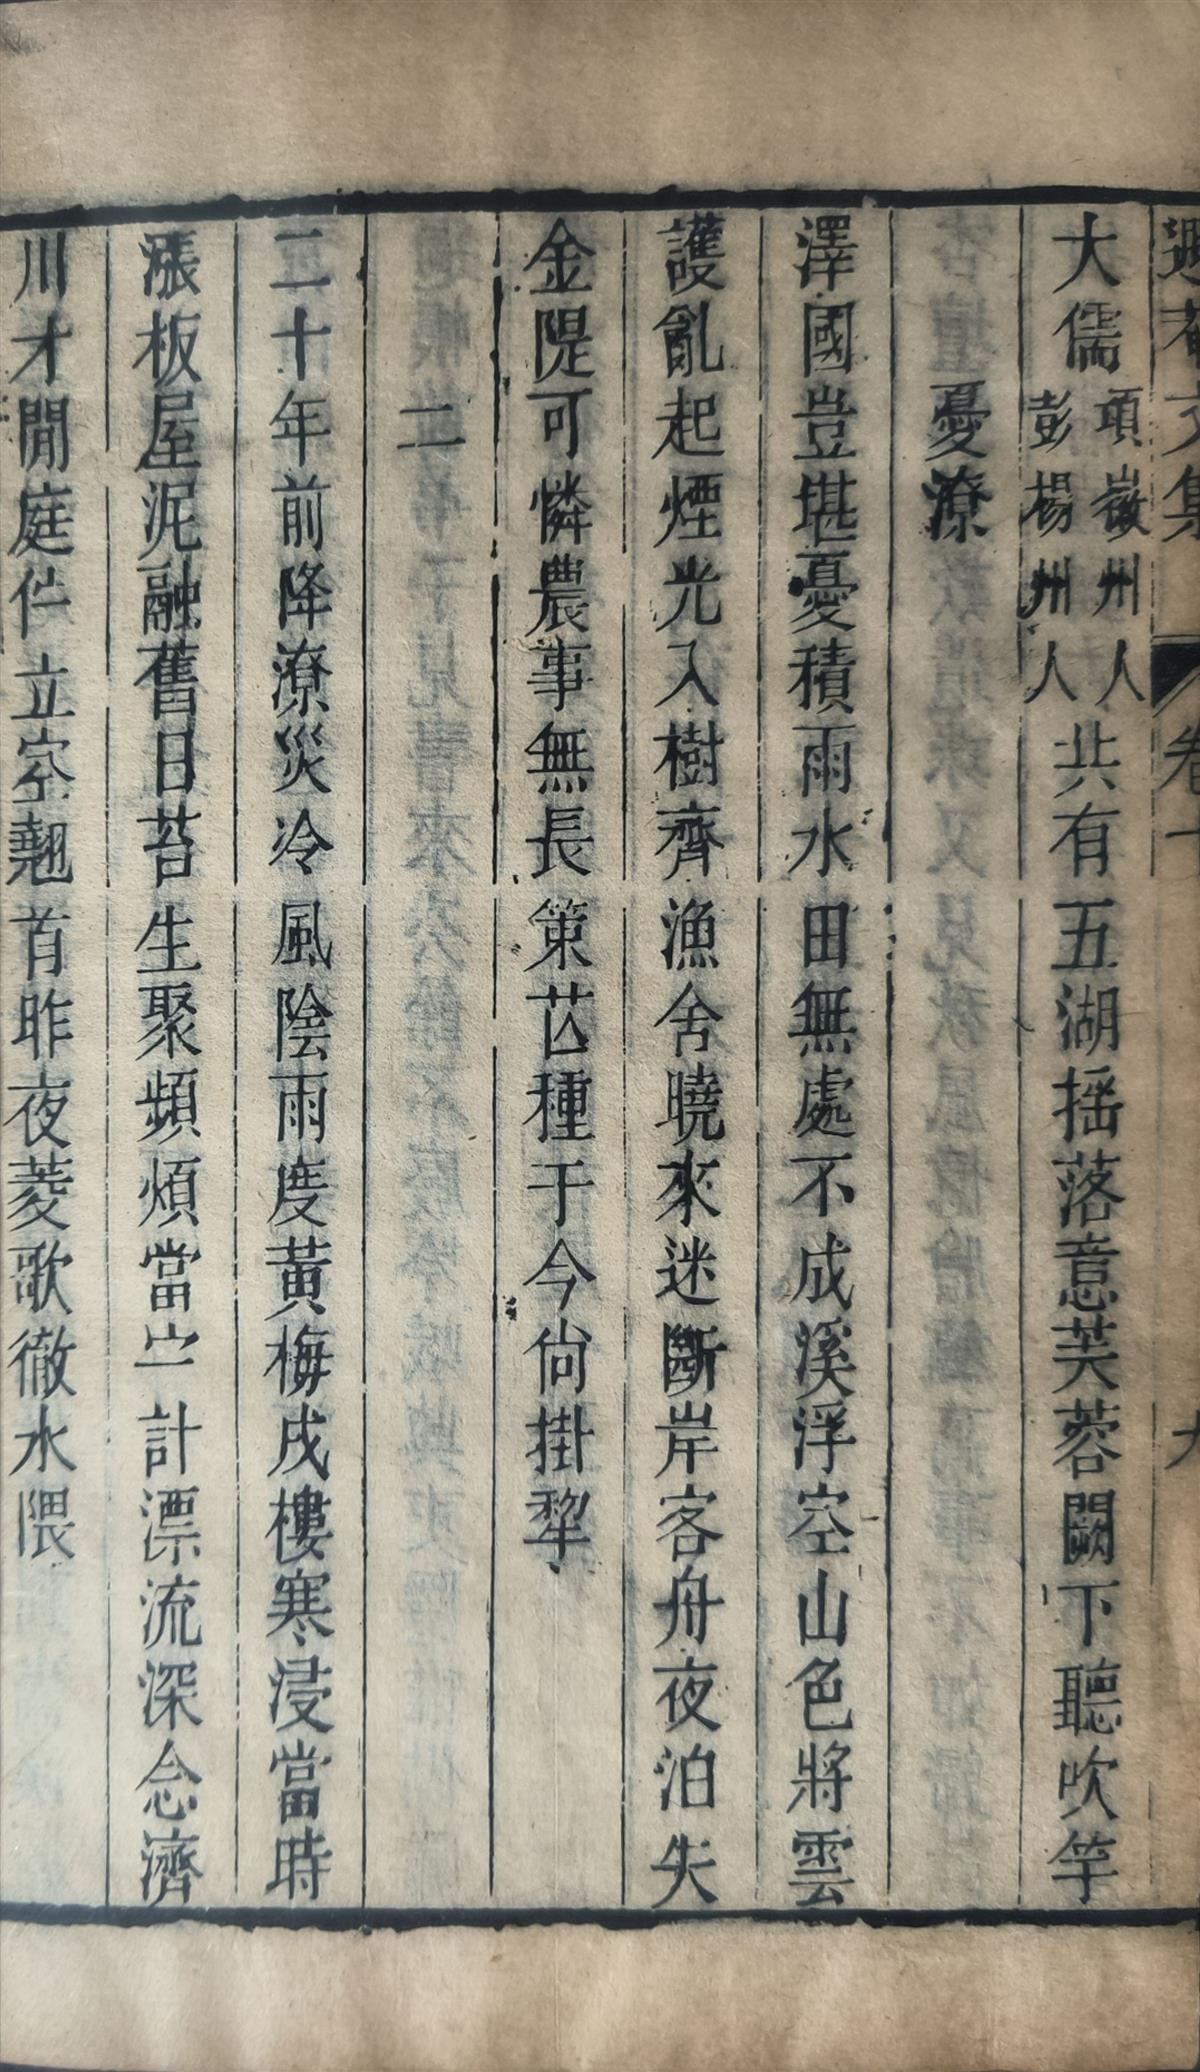 文集 卷
大儒項徽州人彭楊州人共有五湖揺落意芙蓉闕下聽吹竽
憂潦
澤國豈堪憂積雨水田無處不成溪浮空山色將雲
護亂起煙光入樹齊漁舍曉來迷斷岸客舟夜泊失
金隄可憐農事無長策苡種于今尙掛犂
二
二十年前降潦災冷風陰雨度黃梅戍樓寒浸當時
漲板屋泥融舊日苔生聚頻煩當宁計漂流深念濟
川才閒庭伫立空翹首昨夜菱歌徹水隈